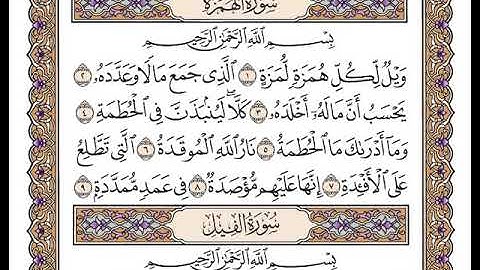 سُورَةُ الْهُمَزَةِ
بِسْمِ ٱللَّهِ ٱلرَّحْمَٰنِ ٱلرَّحِيمِ
وَيْلٌ لِّكُلِّ هُمَزَةٍ لُّمَزَةٍ ١ ٱلَّذِى جَمَعَ مَالًا وَعَدَّدَهُۥ ٢
يَحْسَبُ أَنَّ مَالَهُۥٓ أَخْلَدَهُۥ ٣ كَلَّا ۖ لَيُنۢبَذَنَّ فِى ٱلْحُطَمَةِ ٤
وَمَآ أَدْرَىٰكَ مَا ٱلْحُطَمَةُ ٥ نَارُ ٱللَّهِ ٱلْمُوقَدَةُ ٦ ٱلَّتِى تَطَّلِعُ
عَلَى ٱلْأَفْـِٔدَةِ ٧ إِنَّهَا عَلَيْهِم مُّؤْصَدَةٌ ٨ فِى عَمَدٍ مُّمَدَّدَةٍۭ ٩
سُورَةُ الْفِيلِ
بِسْمِ ٱللَّهِ ٱلرَّحْمَٰنِ ٱلرَّحِيمِ